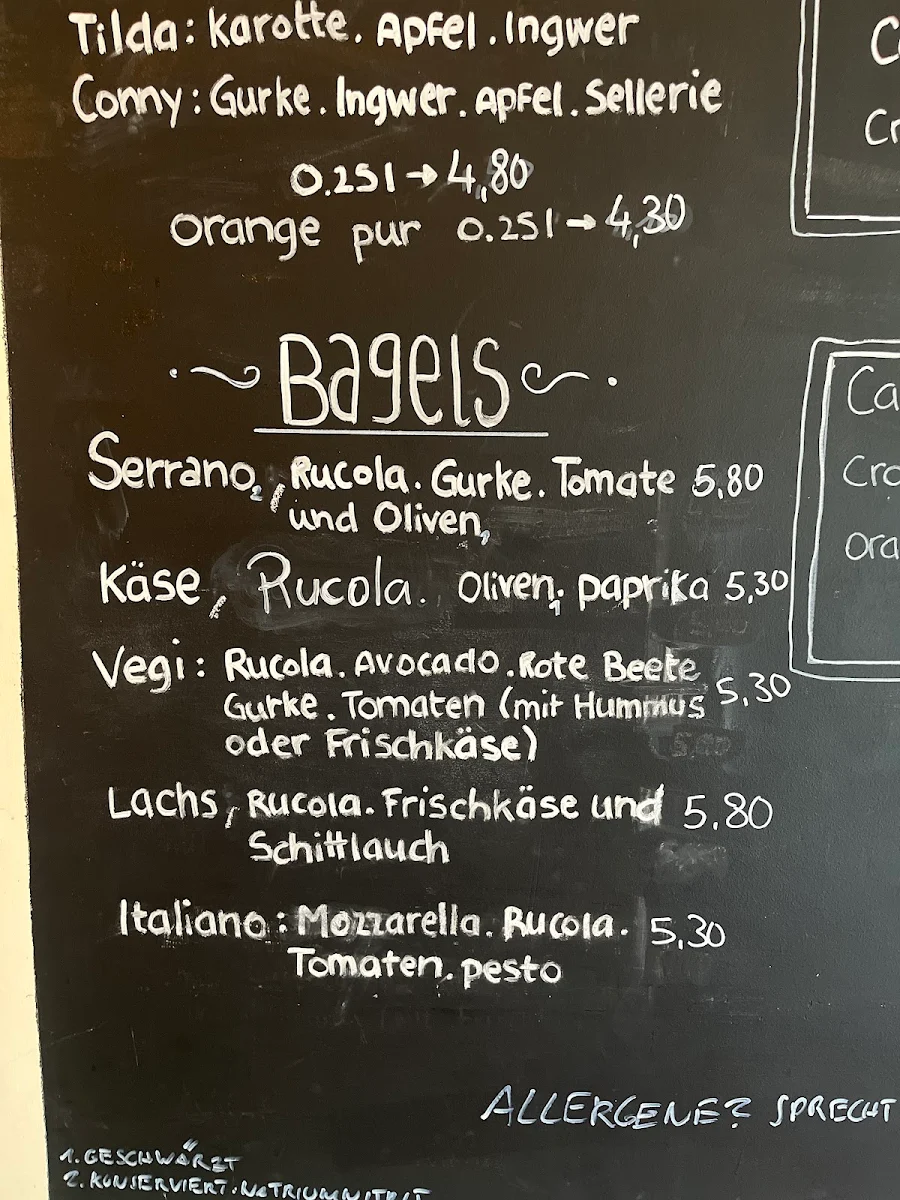 Tilda: Karotte. Apfel. Ingwer
Conny: Gurke. Ingwer. Apfel. Sellerie
0.25l → 4,80
Orange pur 0.25l → 4,30
Bagels
Serrano₂, Rucola. Gurke. Tomate 5,80
und Oliven,
Käse, Rucola. Oliven₁. paprika 5,30
Vegi: Rucola. Avocado. Rote Beete
Gurke. Tomaten (mit Hummus 5,30
oder Frischkäse)
Lachs, Rucola. Frischkäse und 5.80
Schittlauch
Italiano: Mozzarella. Rucola. 5,30
Tomaten. pesto
C
Cr
Ca
Cro
Ora
ALLERGENE? SPRECHT
1. GESCHWÄRZT
2. KONSERVIERT. NATRIUMNITRIT